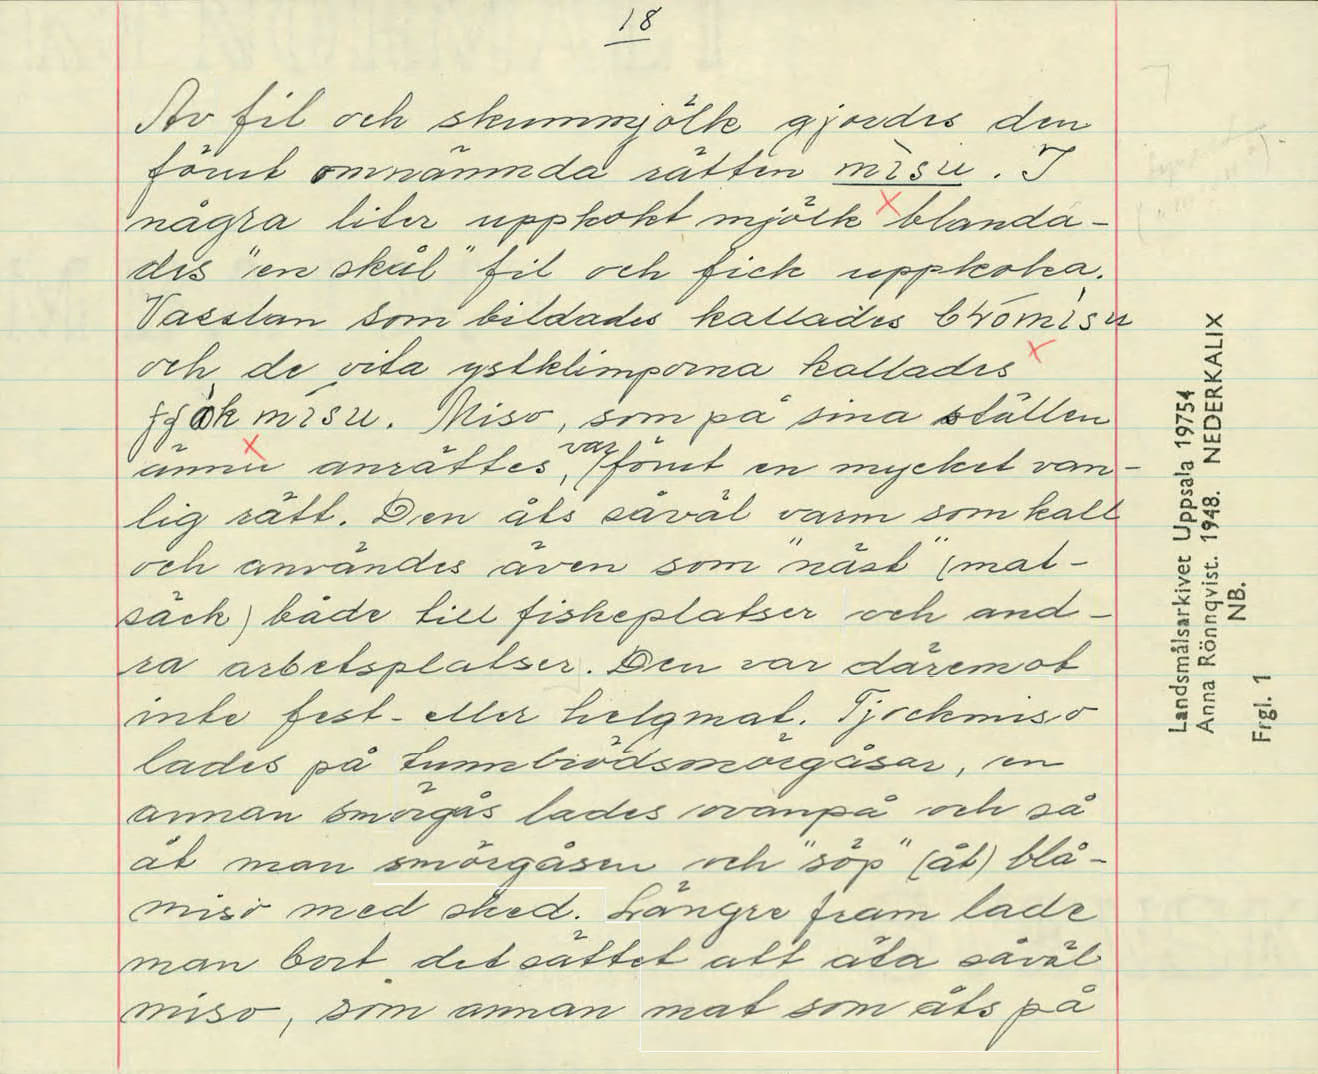 18
Av fil och skummjölk gjordes den
förut omnämnda rätten mìsu. I
några liter uppkokt mjölk blanda-
des "en skål" fil och fick uppkoka.
Vasslan som bildades kallades
och de vita ystklimporna kallades
mísu. Miso, som på sina ställen
ännu anrättes, var förut en mycket van-
lig rätt. Den åts såväl varm som kall
och användes även som "näst" (mat-
säck) både till fiskeplatser och and-
ra arbetsplatser. Den var däremot
inte fest- eller helgmat. Tjockmiso
lades på tunnbrödsmörgåsar, en
annan smörgås lades ovanpå och så
åt man smörgåsen och "söp" (åt) blå-
miso med sked. Längre fram lade
man bort det sättet att äta såväl
miso, som annan mat som åts på
Landsmålsarkivet Uppsala 19754
Anna Rönnqvist. 1948. NEDERKALIX
NB.
Frgl. 1